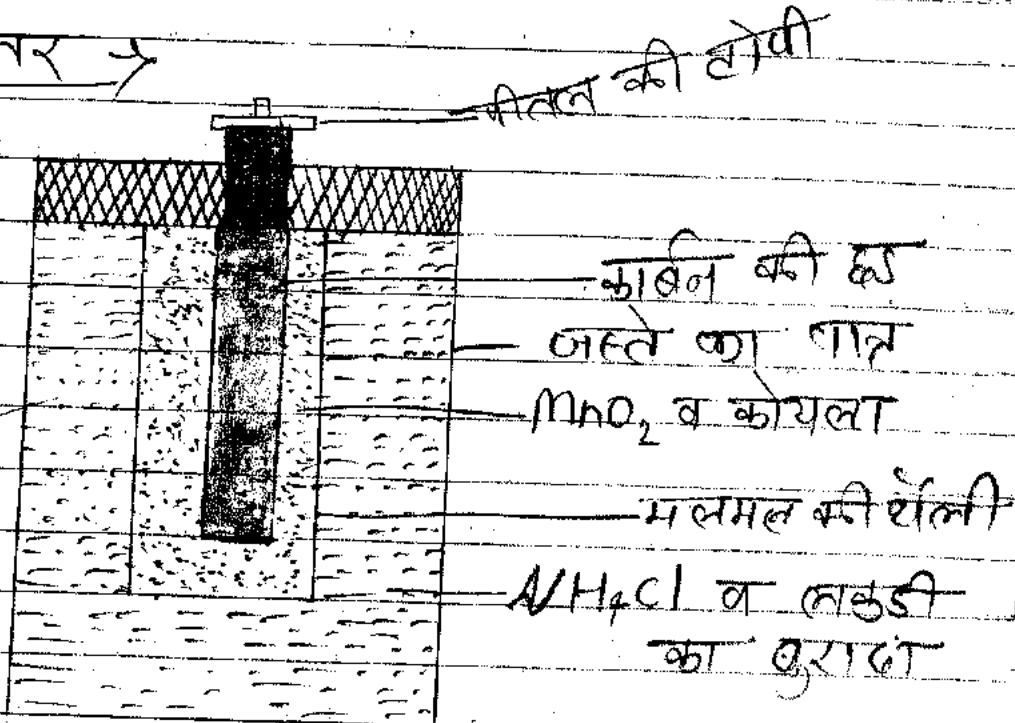 पीतल की टोपी
कार्बन की छड
जस्ते का पात्र
MnO₂ व कोयला
मलमल की थैली
NH₄Cl व लकडी
का बुरादा